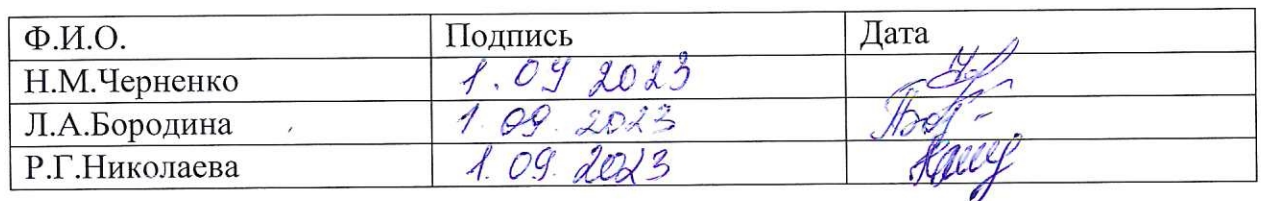 Ф.И.О. Подпись Дата
Н.М.Черненко 1.09 2023
Л.А.Бородина 1.09.2023
Р.Г.Николаева 1.09.2023